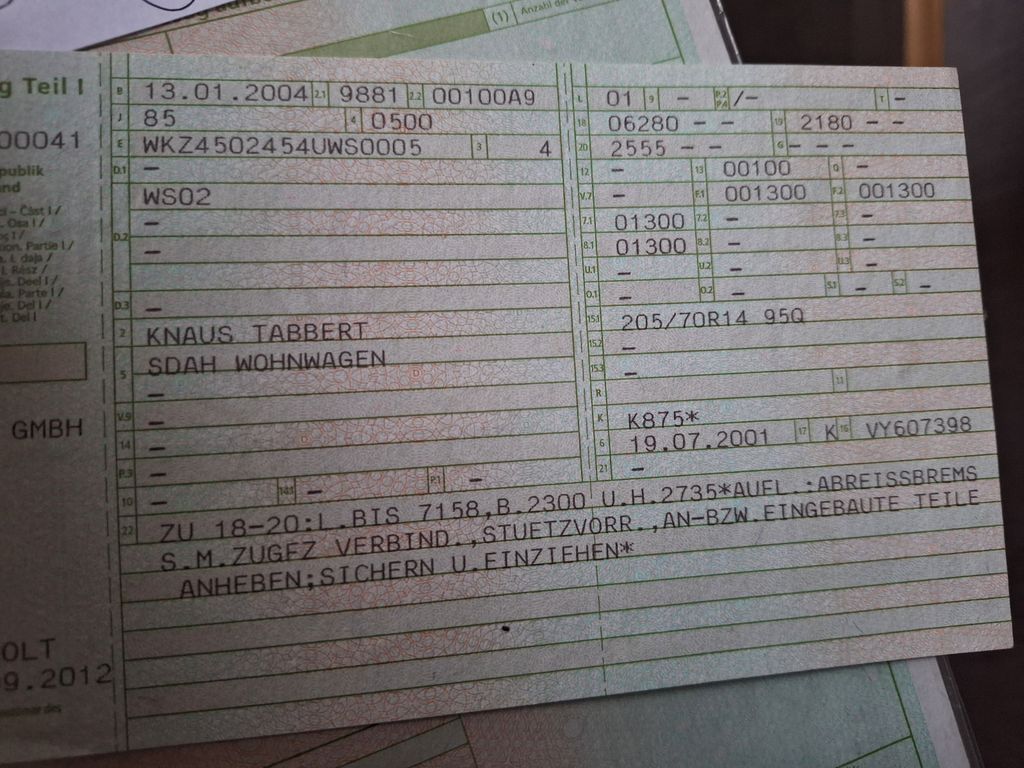 (1) Anzahl der
g Teil I
00041
publik
nd
B 13.01.2004 2.1 9881 2.2 00100A9
J 85 4 0500
E WKZ4502454UWS0005 3 4
D.1 –
WS02
D.2 –
–
D.3 –
2 KNAUS TABBERT
5 SDAH WOHNWAGEN
–
V.9 –
14 –
P.3 – 14.1 – P.1 –
10 –
L 01 9 – P.2 P.4 /– T –
18 06280 – – 19 2180 – –
20 2555 – – G – – –
12 – 13 00100 Q –
V.7 – F.1 001300 F.2 001300
7.1 01300 7.2 – 7.3 –
8.1 01300 8.2 – 8.3 –
U.1 – U.2 – U.3 –
O.1 – O.2 – S.1 – S.2 –
15.1 205/70R14 95Q
15.2 –
15.3 –
R 11
K K875*
6 19.07.2001 17 K 16 VY607398
21 –
22 ZU 18-20:L.BIS 7158,B.2300 U.H.2735*AUFL.:ABREISSBREMS
S.M.ZUGFZ VERBIND.,STUETZVORR.,AN-BZW.EINGEBAUTE TEILE
ANHEBEN;SICHERN U.EINZIEHEN*
GMBH
OLT
9.2012